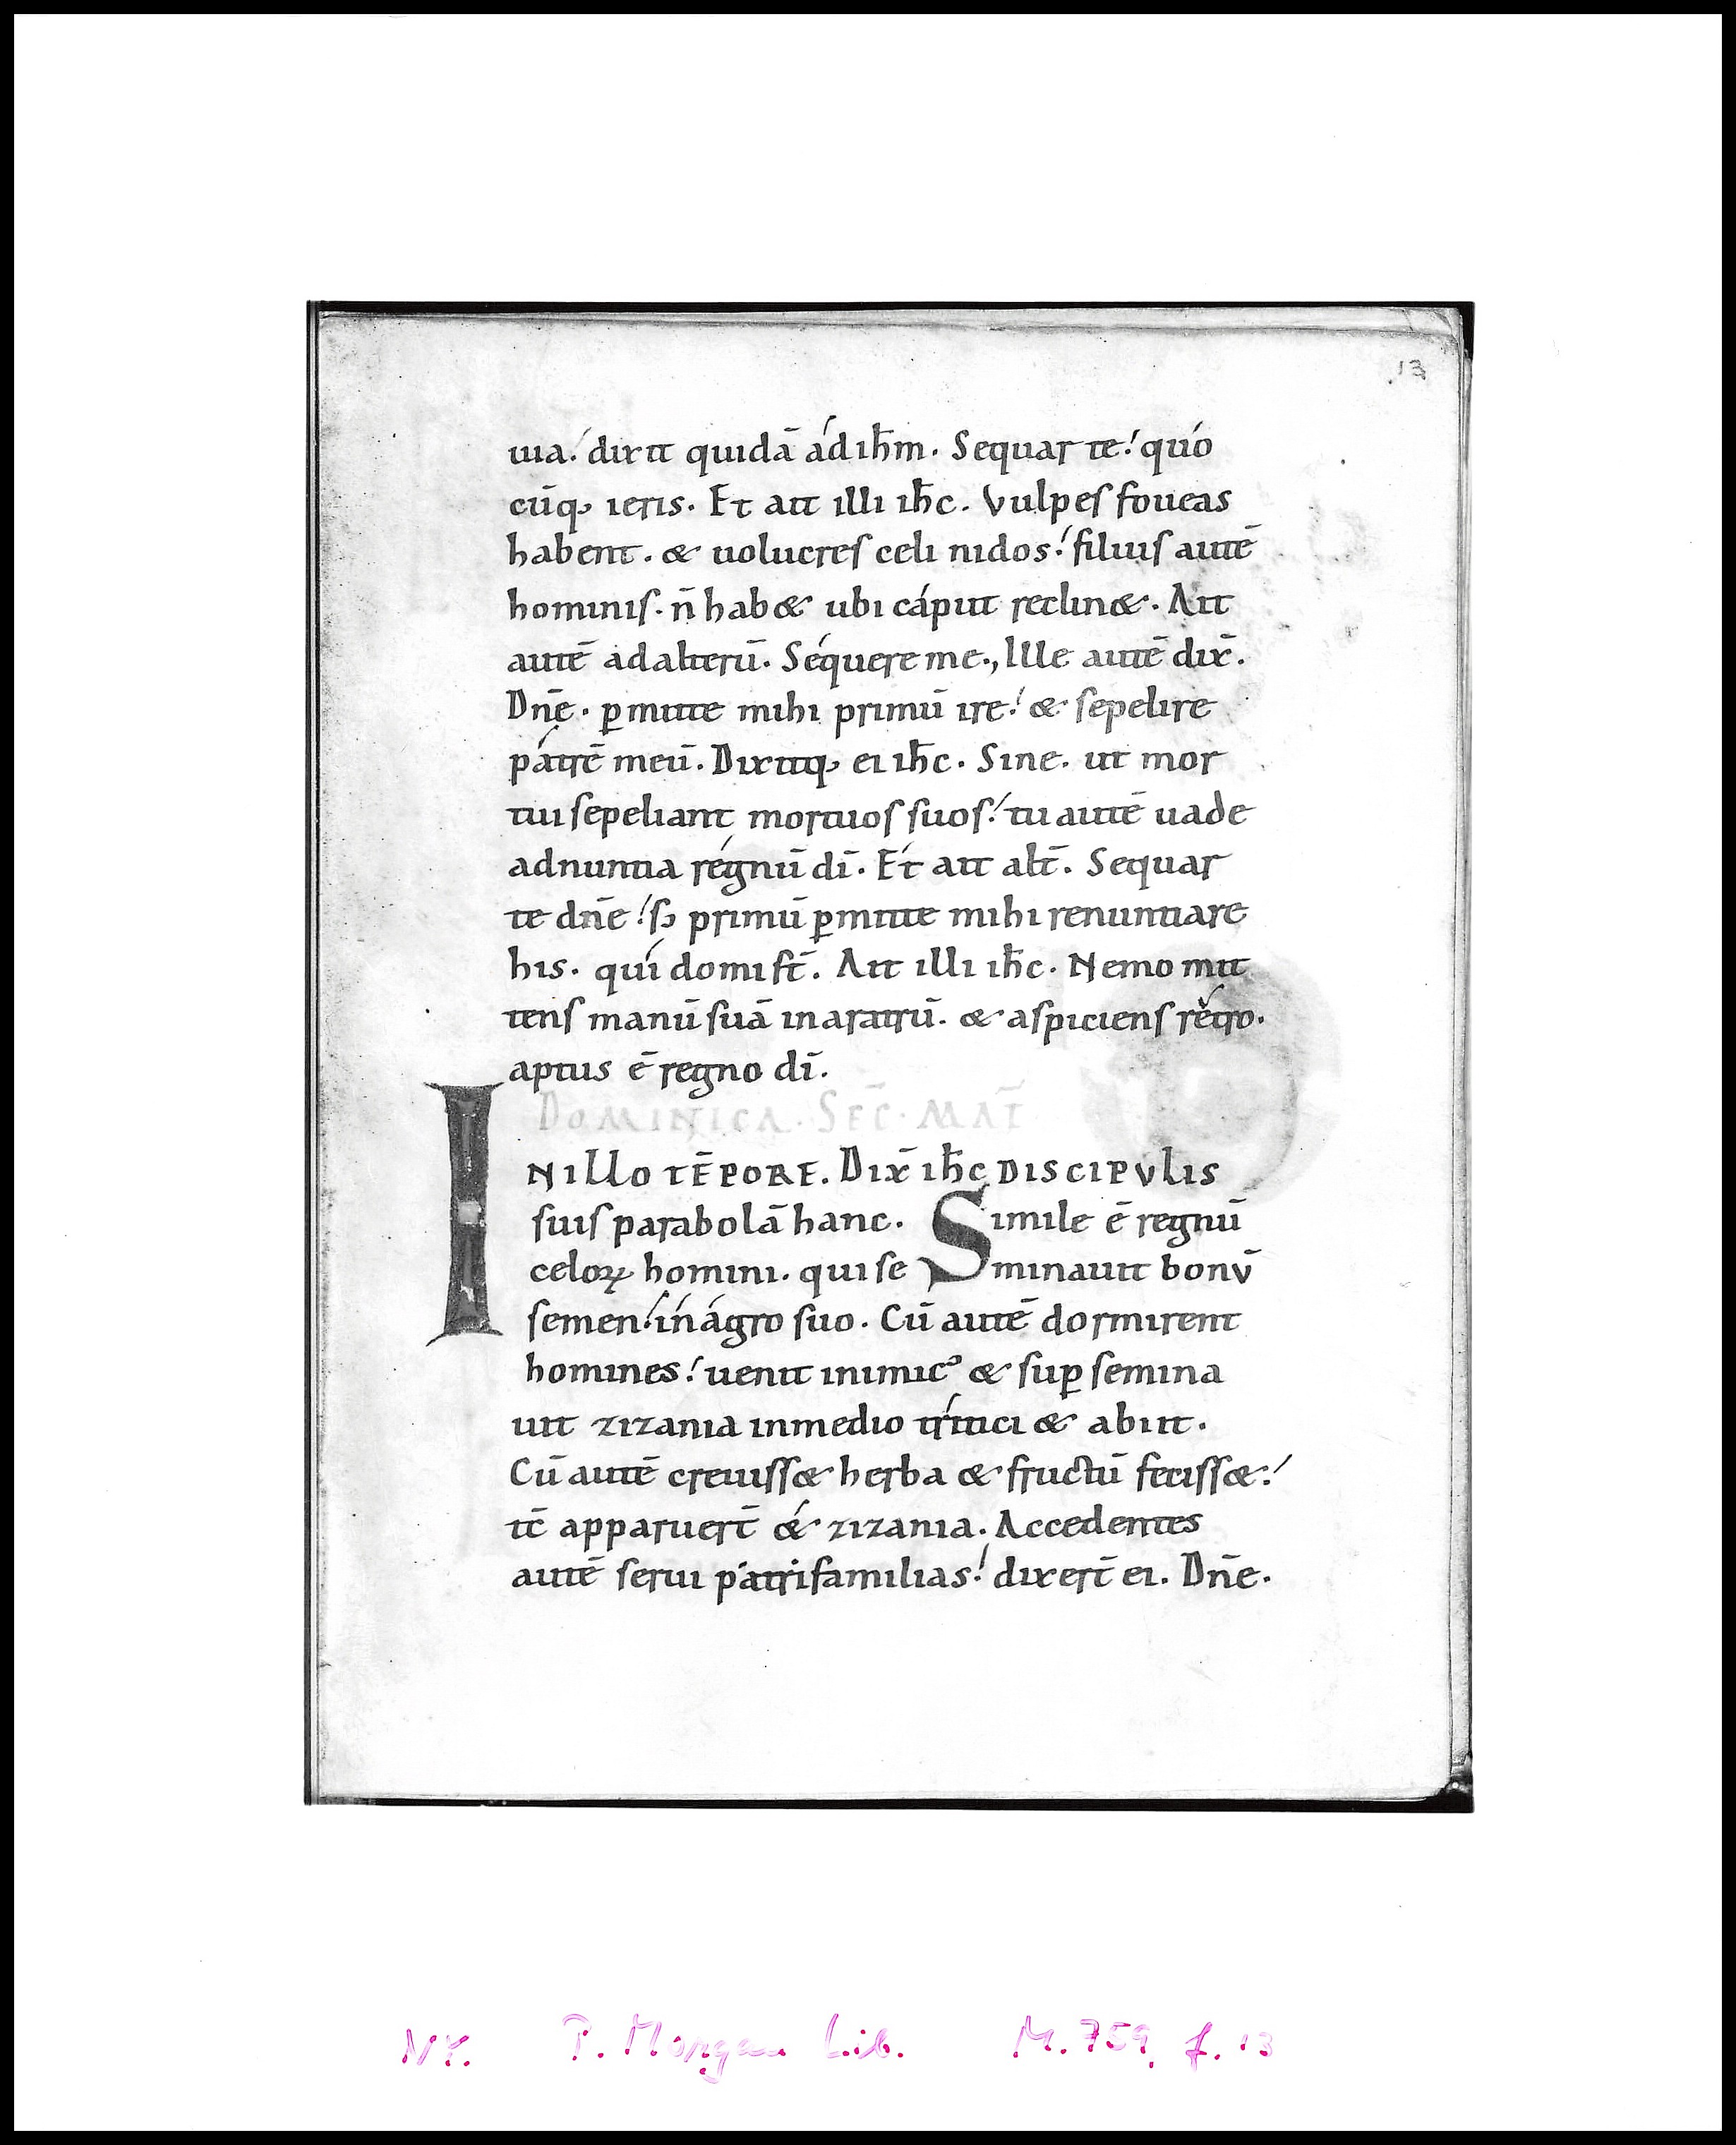 13
uia. dixit quidā ad ih̄m. Sequar te. quo
cūq; ieris. Et ait illi ih̄c. Vulpes foueas
habent. & uolucres celi nidos. filius autē
hominis. n̄ hab& ubi caput reclin&. Ait
autē ad alterū. Sequere me., Ille autē dix̄.
Dn̄e. ꝑmitte mihi primū ire. & sepelire
patrē meū. Dixitq; ei ih̄c. Sine. ut mor
tui sepeliant mortuos suos. tu autē uade
adnuntia regnū dī. Et ait alt̄. Sequar
te dn̄e. s; primū ꝑmitte mihi renuntiare
his. qui domi st̄. Ait illi ih̄c. Nemo mit
tens manū suā in aratrū. & aspiciens retro.
aptus ē regno dī.
DOMINICA. SEC̄. MAT̄
IN ILLO TĒPORE. DIX̄ ih̄c DISCIPVLIS
suis parabolā hanc. Simile ē regnū
celoꝝ homini. qui se minauit bonv̄
semen. in agro suo. Cū autē dormirent
homines. uenit inimicꝰ & suꝑ semina
uit zizania in medio tritici & abiit.
Cū autē creuiss& herba & fructū feciss&.
tc̄ apparuer̄t & zizania. Accedentes
autē serui patrifamilias. dixer̄t ei. Dn̄e.
NY. P. Morgan Lib. M. 759, f. 13